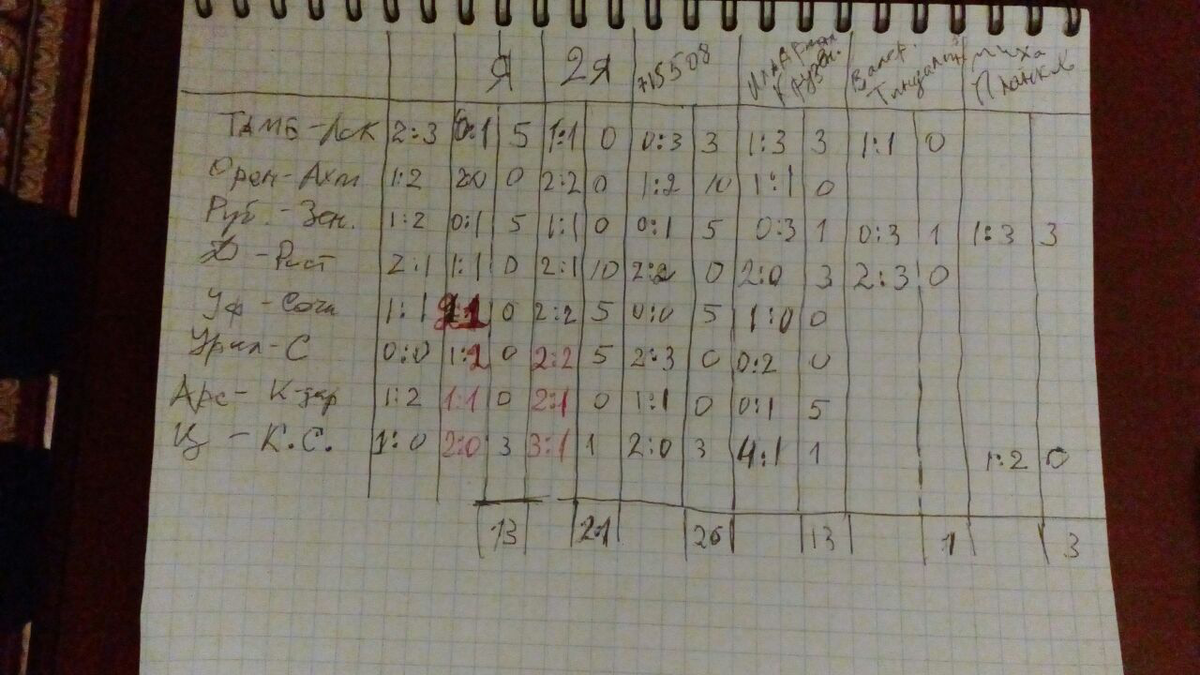 Я 2Я 715508 Валер. миха
ТАМБ-Лок 2:3 0:1 5 1:1 0 0:3 3 1:3 3 1:1 0
Орен-Ахм 1:2 2:0 0 2:2 0 1:2 10 1:1 0
Руб.-Зен. 1:2 0:1 5 1:1 0 0:1 5 0:3 1 0:3 1 1:3 3
Д-Рост 2:1 1:1 0 2:1 10 2:2 0 2:0 3 2:3 0
Уф-Сочи 1:1 0 2:2 5 0:0 5 1:0 0
Урал-С 0:0 1:2 0 2:2 5 2:3 0 0:2 0
Арс-К-дар 1:2 1:1 0 2:1 0 1:1 0 0:1 5
Ц-К.С. 1:0 2:0 3 3:1 1 2:0 3 4:1 1 1:2 0
13 21 26 13 1 3